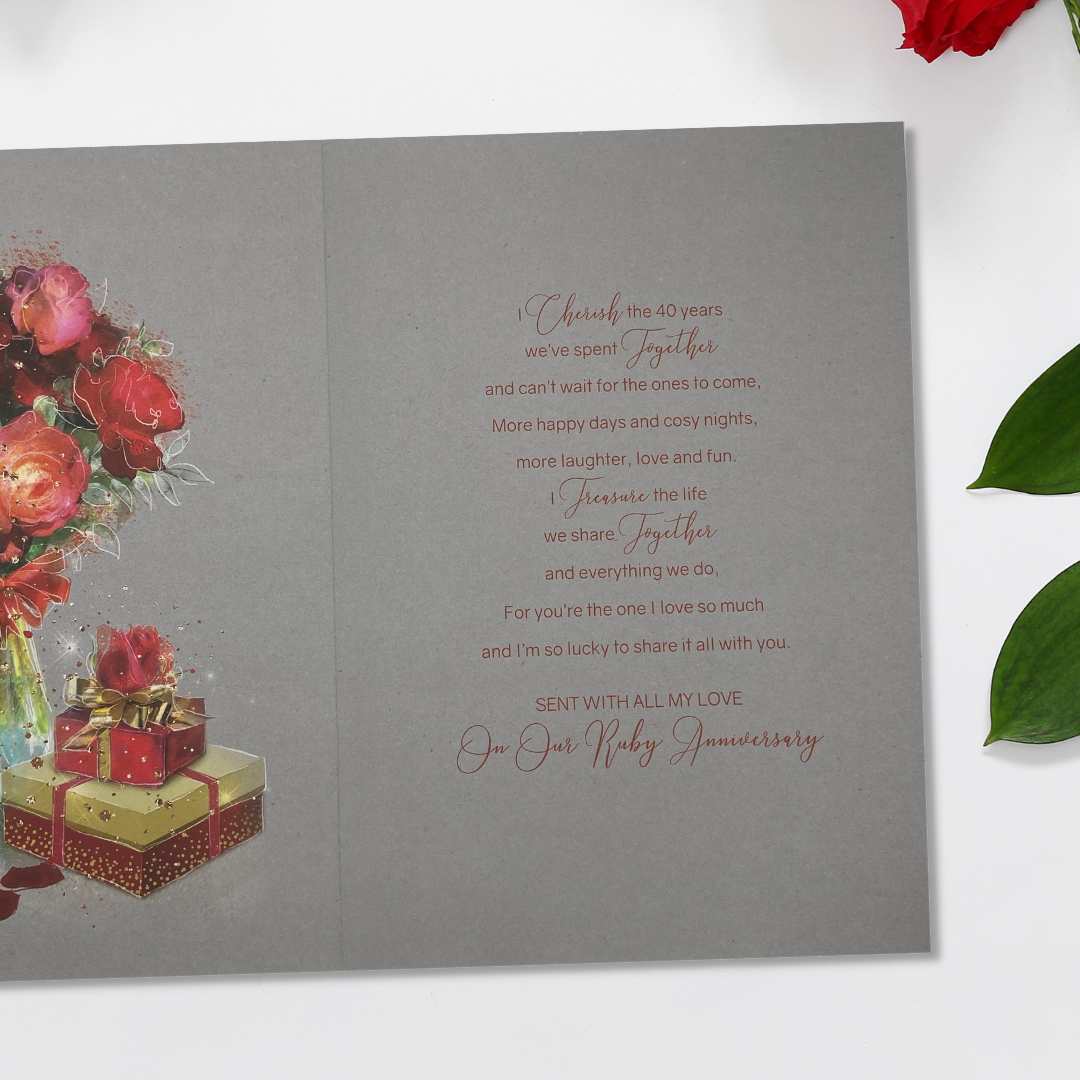 I Cherish the 40 years
we've spent Together
and can't wait for the ones to come,
More happy days and cosy nights,
more laughter, love and fun.
I Treasure the life
we share Together
and everything we do,
For you're the one I love so much
and I'm so lucky to share it all with you.
SENT WITH ALL MY LOVE
On Our Ruby Anniversary